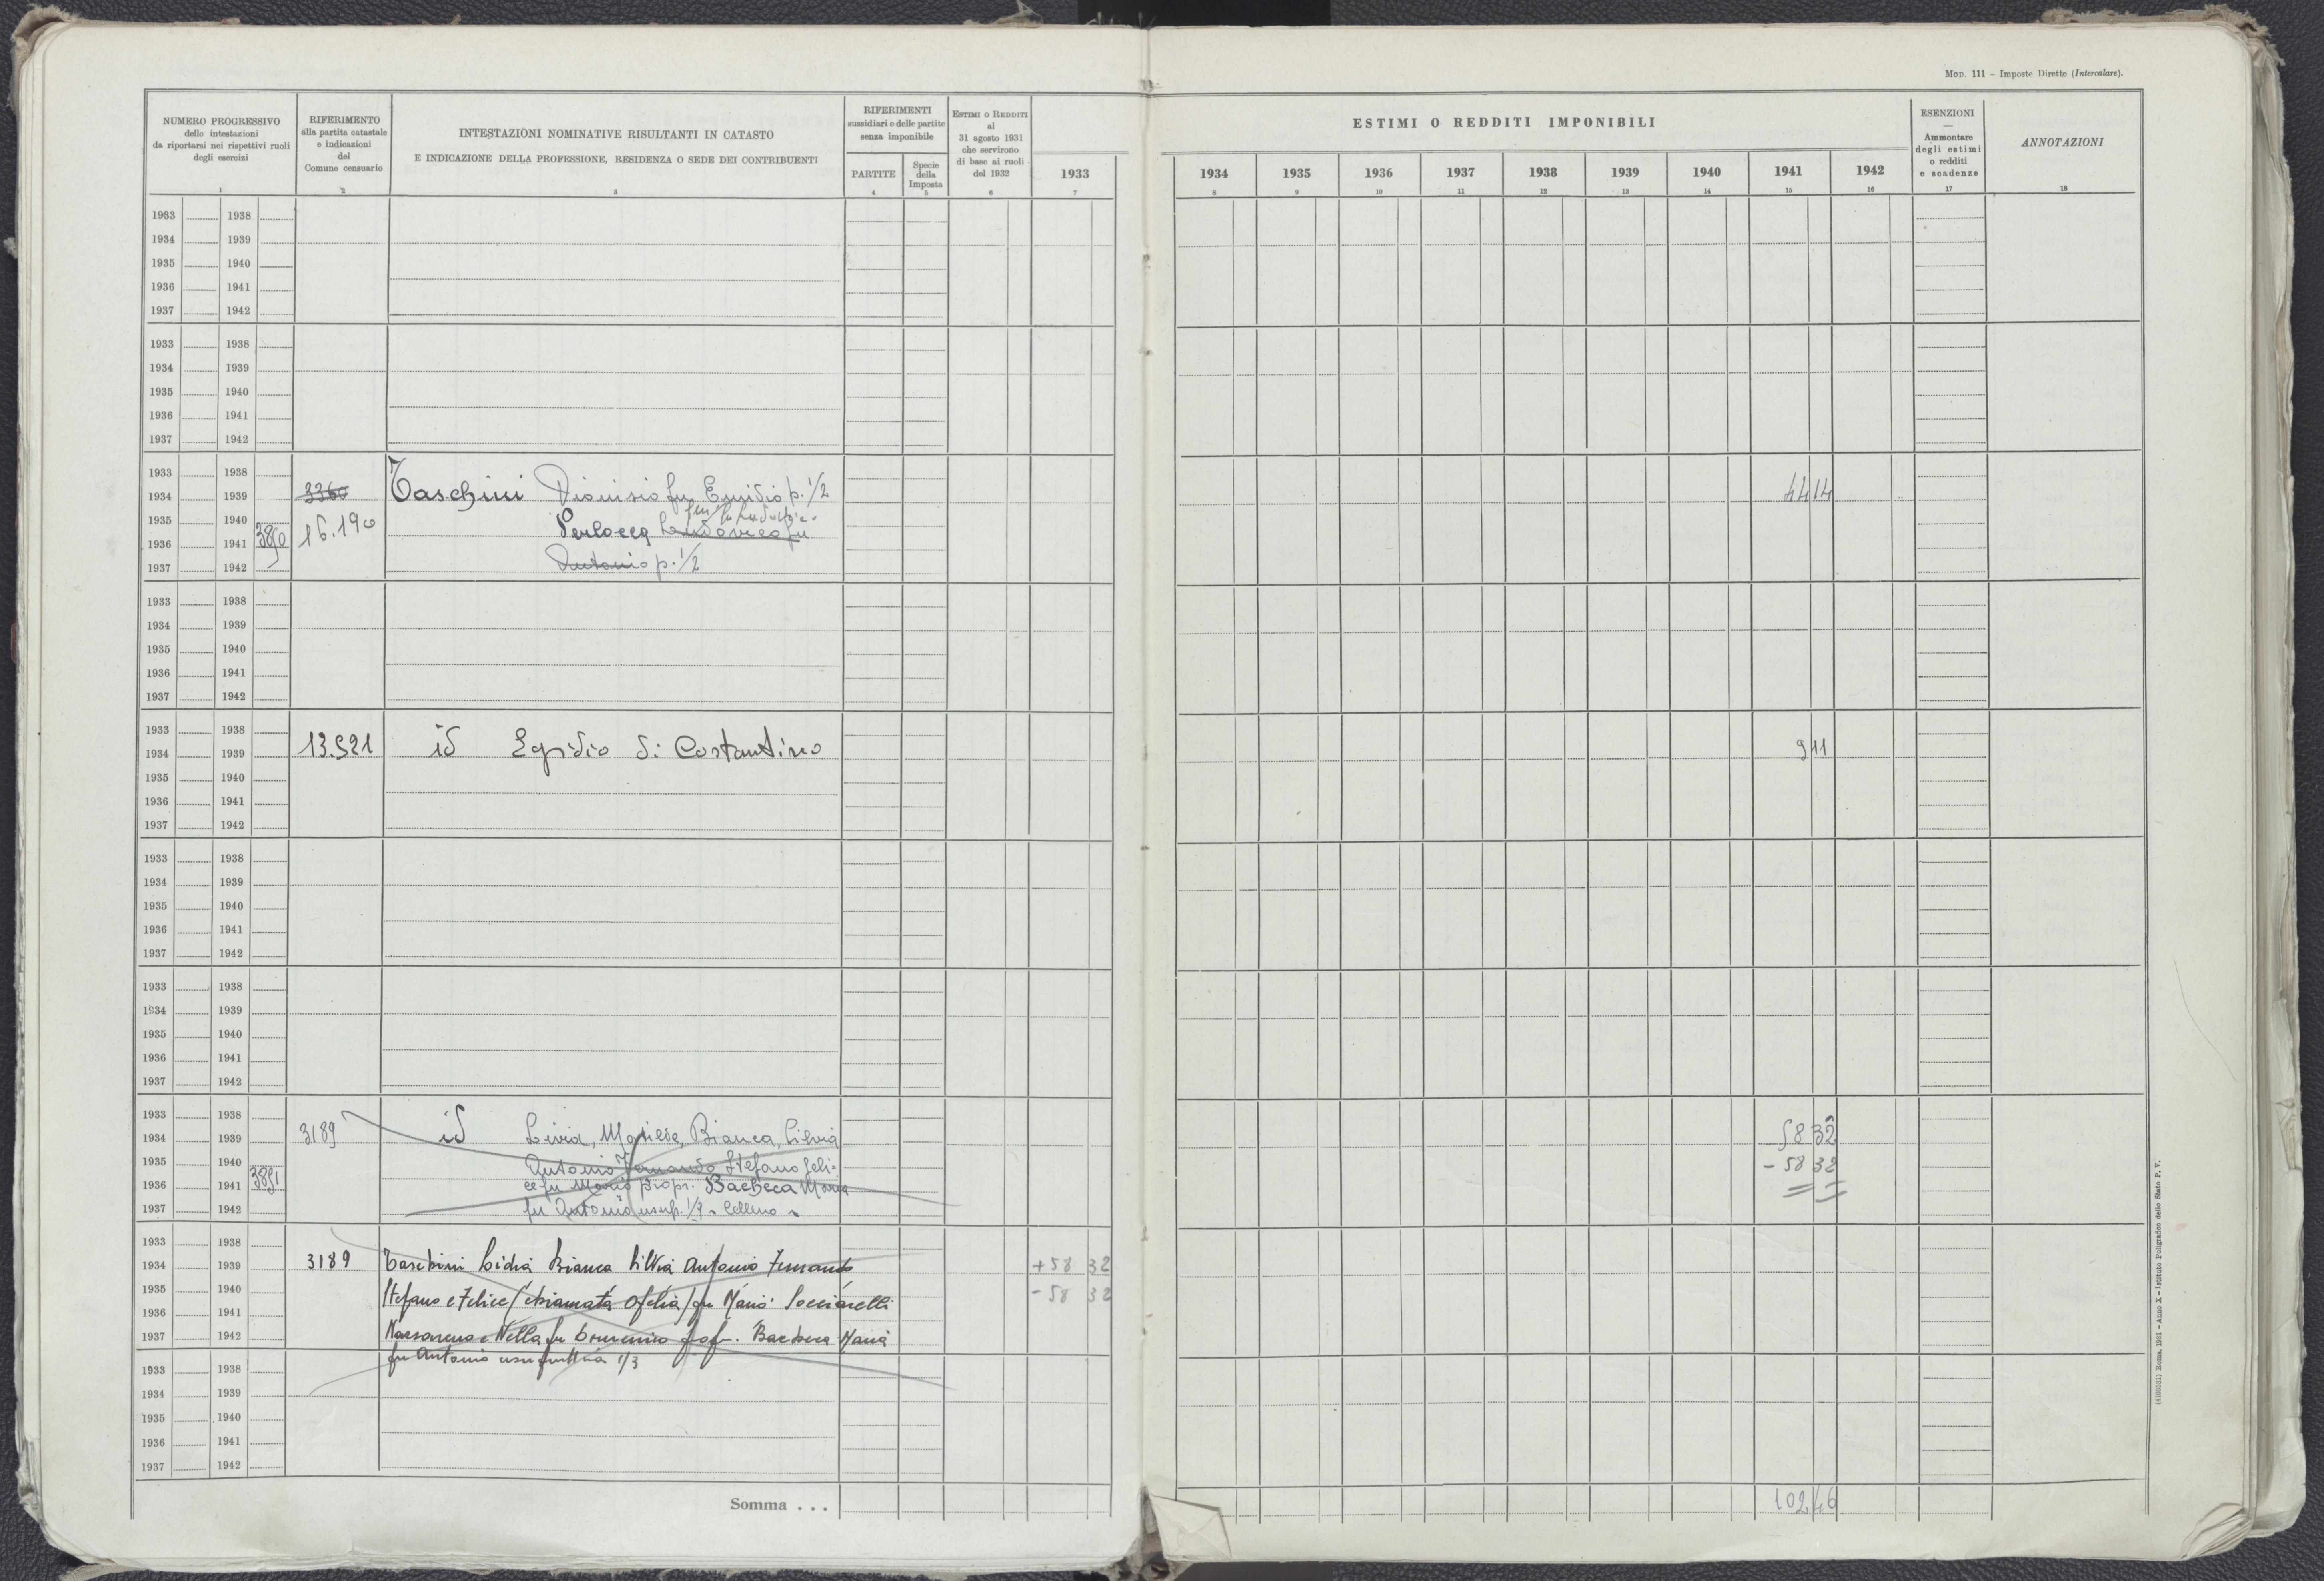 MOD. 111 – Imposte Dirette (Intercalare).
NUMERO PROGRESSIVO
delle intestazioni
da riportarsi nei rispettivi ruoli
degli esercizi
1
RIFERIMENTO
alla partita catastale
e indicazioni
del
Comune censuario
2
INTESTAZIONI NOMINATIVE RISULTANTI IN CATASTO
E INDICAZIONE DELLA PROFESSIONE, RESIDENZA O SEDE DEI CONTRIBUENTI
3
RIFERIMENTI
sussidiari e delle partite
senza imponibile
PARTITE
4
Specie
della
Imposta
5
ESTIMI O REDDITI
al
31 agosto 1931
che servirono
di base ai ruoli
del 1932
6
1933
7
ESTIMI O REDDITI IMPONIBILI
1934 1935 1936 1937 1938 1939 1940 1941 1942
8 9 10 11 12 13 14 15 16
ESENZIONI
—
Ammontare
degli estimi
o redditi
e scadenze
17
ANNOTAZIONI
18
1933 1938
1934 1939
1935 1940
1936 1941
1937 1942
1933 1938
1934 1939
1935 1940
1936 1941
1937 1942
1933 1938
1934 1939 3360 Taschini Dionisio fu Emidio p. 1/2 44 14
1935 1940 16.190
1936 1941 3890 Perlocca Ludovico fu
1937 1942 Antonio p. 1/2
1933 1938
1934 1939
1935 1940
1936 1941
1937 1942
1933 1938
1934 1939 13.521 id Egidio di Costantino 9 11
1935 1940
1936 1941
1937 1942
1933 1938
1934 1939
1935 1940
1936 1941
1937 1942
1933 1938
1934 1939
1935 1940
1936 1941
1937 1942
1933 1938
1934 1939 3189 id Livia, Matilde, Bianca, Silvia 58 32
1935 1940 Antonio Fernando Stefano Feli= - 58 32
1936 1941 3891 ce fu Mario propr. Bacheca Maria
1937 1942 fu Antonio usuf. 1/3 - Celleno -
1933 1938
1934 1939 3189 Taschini Lidia Bianca Silvia Antonio Fernando +58 32
1935 1940 Stefano e Felice (chiamata Ofelia) fu Mario Socciarelli - 58 32
1936 1941
1937 1942 Nazzareno e Nella fu Domenico propr. Bacheca Maria
fu Antonio usufruttuaria 1/3
1933 1938
1934 1939
1935 1940
1936 1941
1937 1942
Somma . . . 102 46
(4103551) Roma, 1931 – Anno X – Istituto Poligrafico dello Stato P. V.